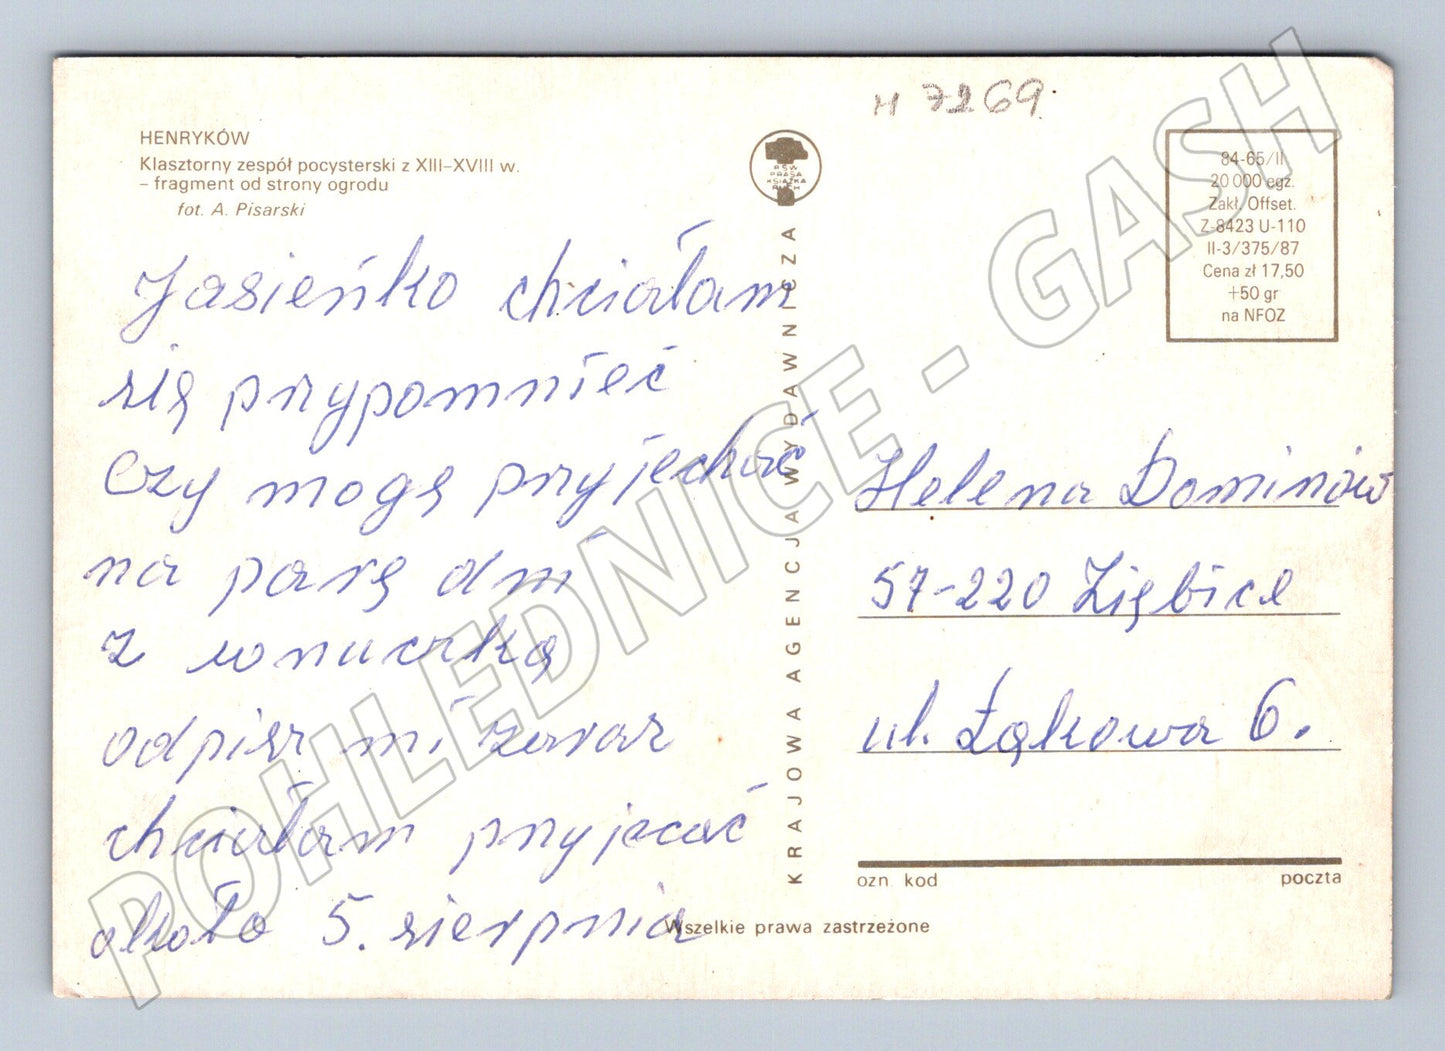 H 7269
HENRYKÓW
Klasztorny zespół pocysterski z XIII–XVIII w.
– fragment od strony ogrodu
fot. A. Pisarski
Jasieńko chciałam
się przypomnieć
Czy mogę przyjechać
na parę dni
z wnuczką
odpisz mi zaraz
chciałam przyjecać
około 5. sierpnia
RSW
PRASA
KSIĄŻKA
RUCH
KRAJOWA AGENCJA WYDAWNICZA
84-65/II
20 000 egz.
Zakł. Offset.
Z-8423 U-110
II-3/375/87
Cena zł 17,50
+50 gr
na NFOZ
Helena Dominów
57-220 Ziębice
ul. Łąkowa 6.
ozn. kod poczta
Wszelkie prawa zastrzeżone
POHLEDNICE - GASH